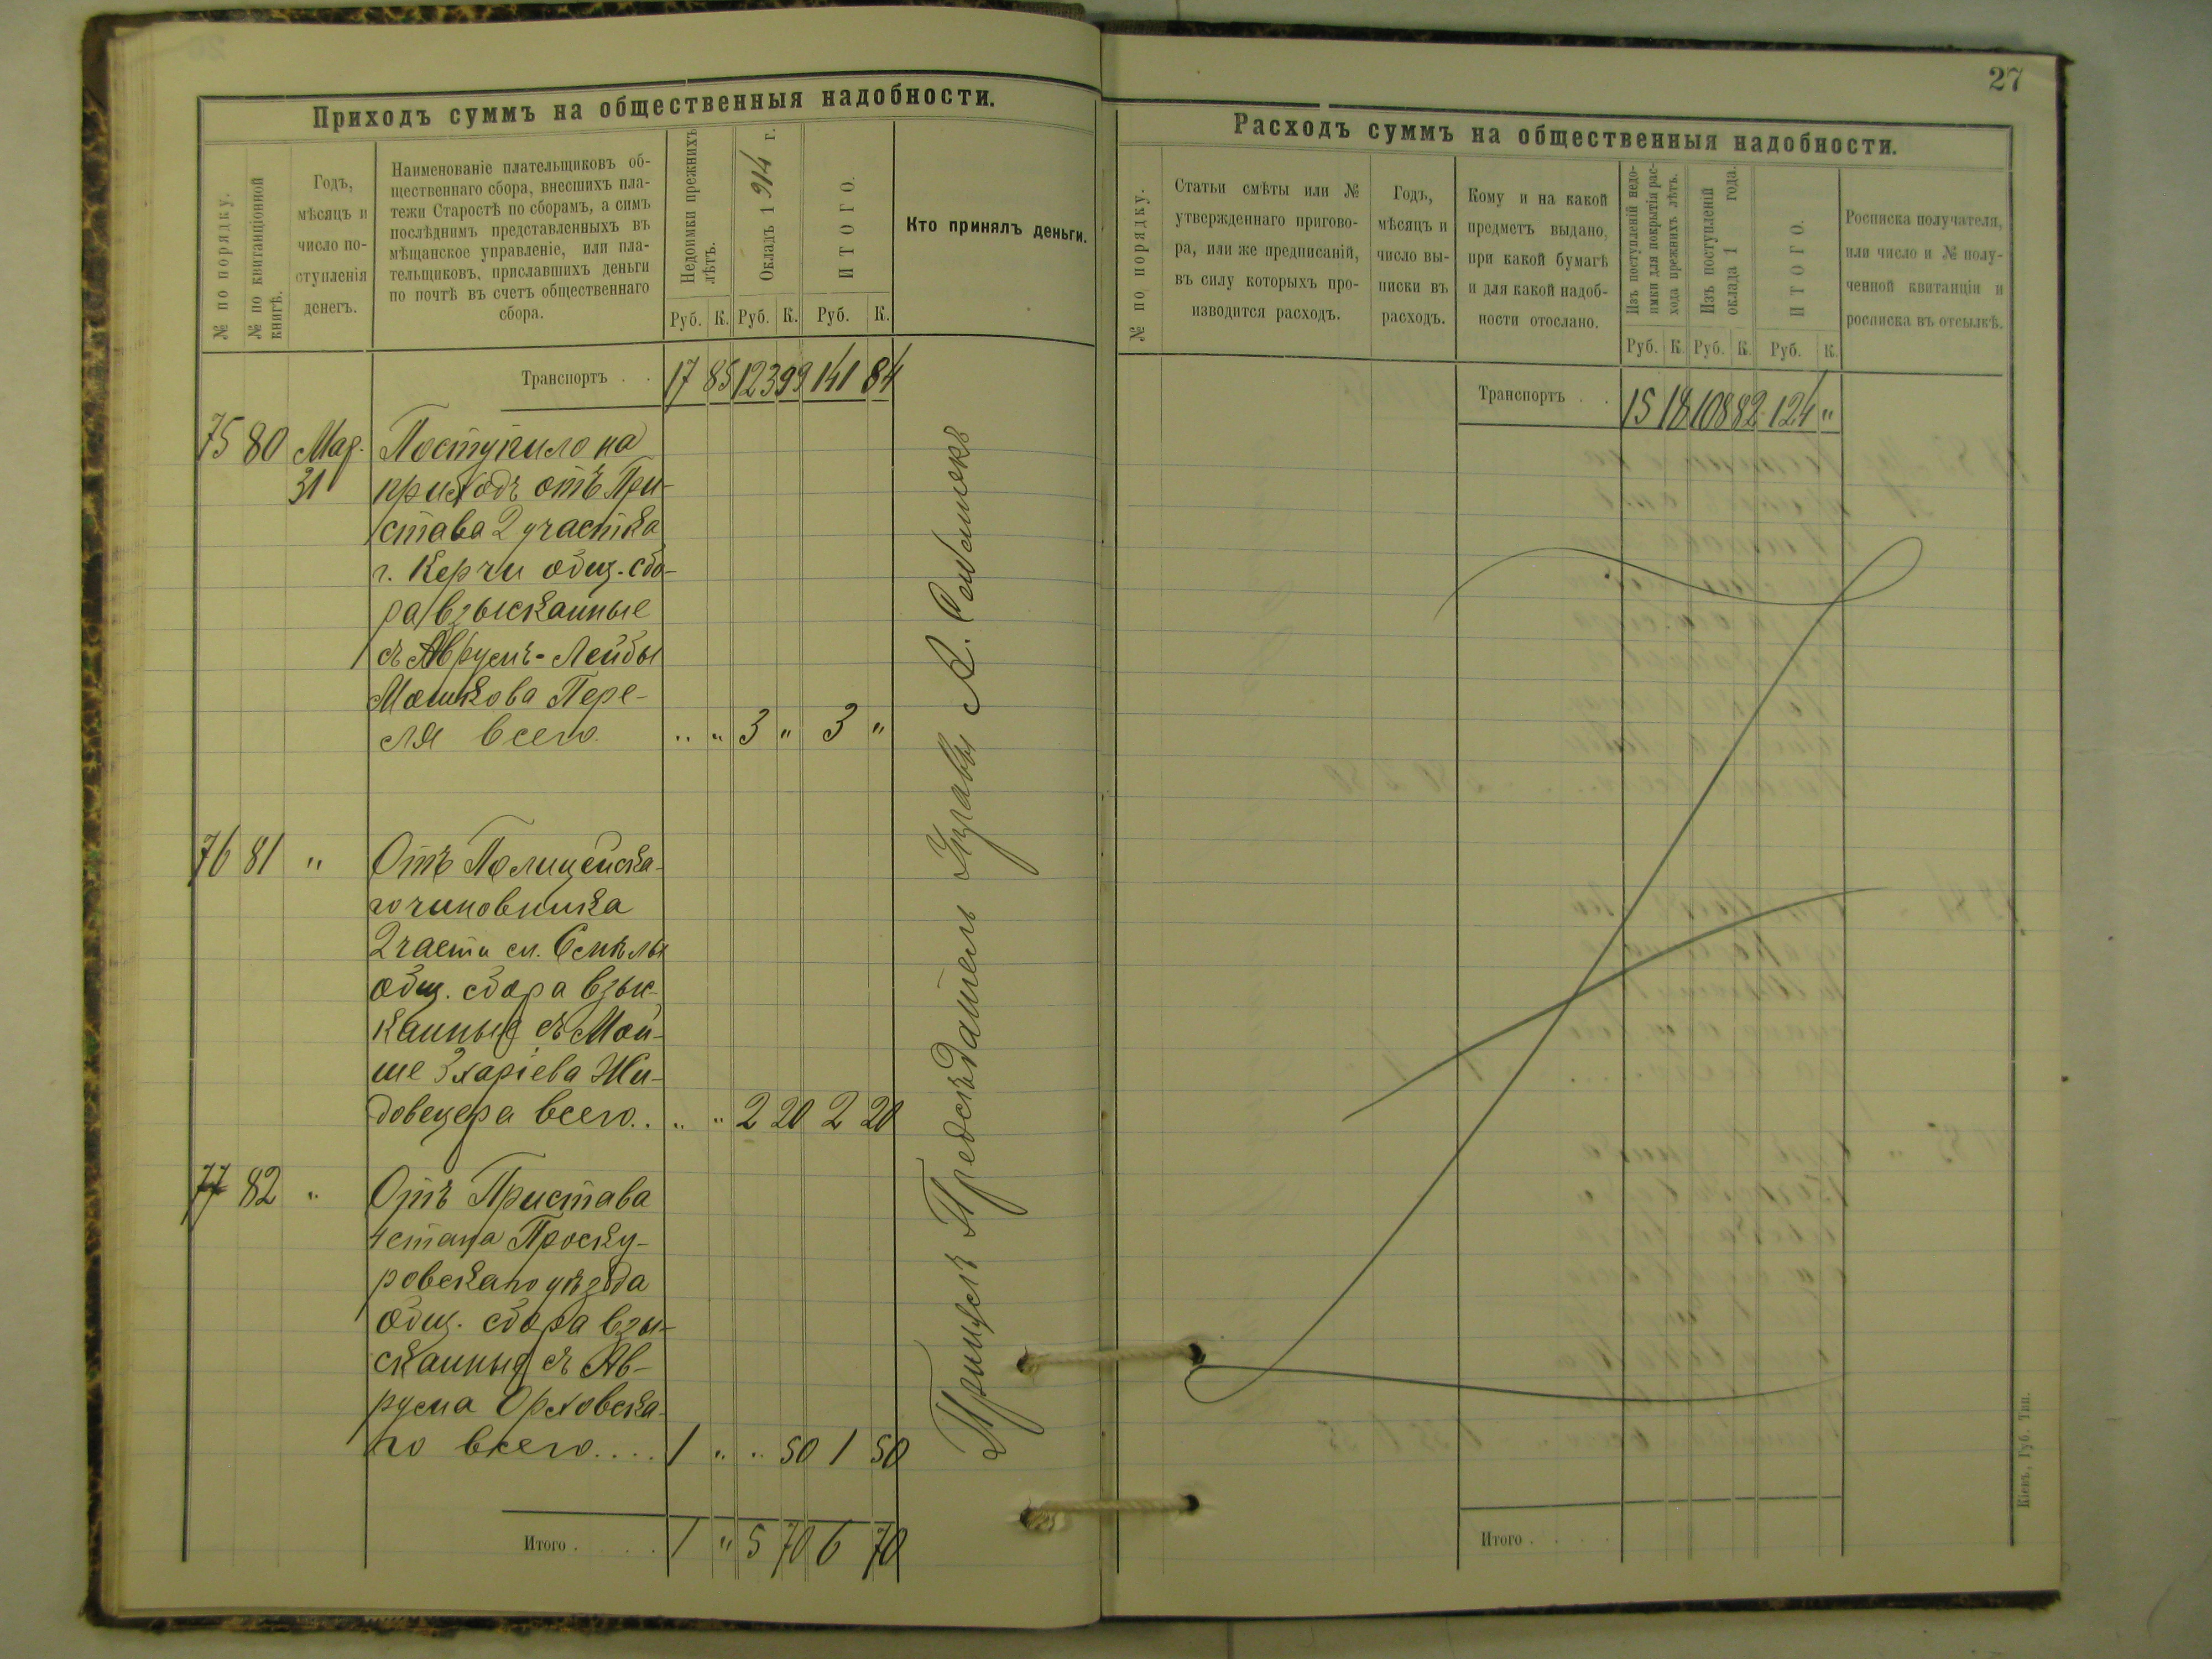 27
Приходъ суммъ на общественныя надобности.
№ по порядку.
№ по квитанціонной
книгѣ.
Годъ,
мѣсяцъ и
число по-
ступленія
денегъ.
Наименованіе плательщиковъ об-
щественнаго сбора, внесшихъ пла-
тежи Старостѣ по сборамъ, а симъ
послѣднимъ представленныхъ въ
мѣщанское управленіе, или пла-
тельщиковъ, приславшихъ деньги
по почтѣ въ счетъ общественнаго
сбора.
Недоимки прежнихъ
лѣтъ.
Окладъ 1914 г.
ИТОГО.
Кто принялъ деньги.
Руб. К. Руб. К. Руб. К.
Транспортъ . . 17 85 123 99 141 84
75 80 Мар. Поступило на
31 приходъ отъ При-
става 2 участка
г. Керчи общ. сбо-
ра взысканные
съ Аврумъ-Лейбы
Мошкова Пере-
ля всего " " 3 " 3 "
76 81 " Отъ Полицейска-
го чиновника
2 части см. Смѣлы
общ. сбора взыс-
канные съ Мой-
ше Зхаріева Жи-
довецера всего.. " " 2 20 2 20
77 82 " Отъ Пристава
4 стана Проску-
ровскаго уѣзда
общ. сбора взы-
сканныя съ Ав-
рума Ореховска-
го всего.... 1 " " 50 1 50
Итого . . . . 1 " 5 70 6 70
Предсѣдатель Управы А.
Расходъ суммъ на общественныя надобности.
№ по порядку.
Статьи смѣты или №
утвержденнаго пригово-
ра, или же предписаній,
въ силу которыхъ про-
изводится расходъ.
Годъ,
мѣсяцъ и
число вы-
писки въ
расходъ.
Кому и на какой
предметъ выдано,
при какой бумагѣ
и для какой надоб-
ности отослано.
Изъ поступленій недо-
имки для покрытія рас-
хода прежнихъ лѣтъ.
Изъ поступленій
оклада 1 года.
ИТОГО.
Росписка получателя,
или число и № полу-
ченной квитанціи и
росписка въ отсылкѣ.
Руб. К. Руб. К. Руб. К.
Транспортъ . . 15 18 108 82 124 "
Итого . . . .
Кіевъ, Губ. Тип.